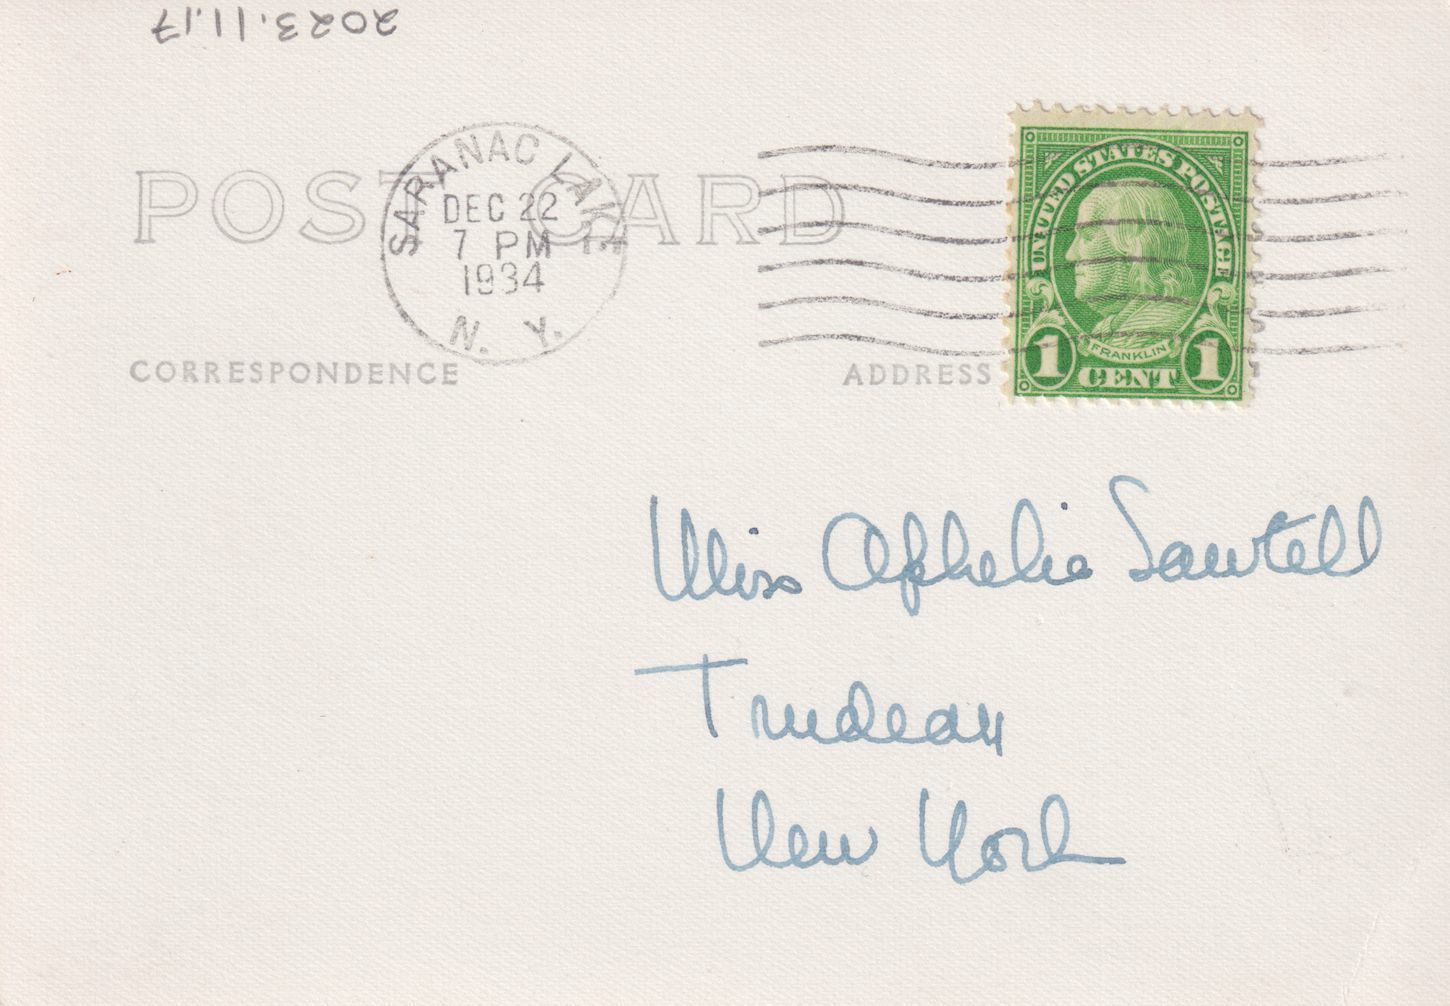 2023.11.17
POST CARD
SARANAC LAKE
DEC 22
7 PM
1934
N. Y.
UNITED STATES POSTAGE
FRANKLIN
1 CENT 1
CORRESPONDENCE
ADDRESS
Miss Ophelia Sawtell
Trudeau
New York